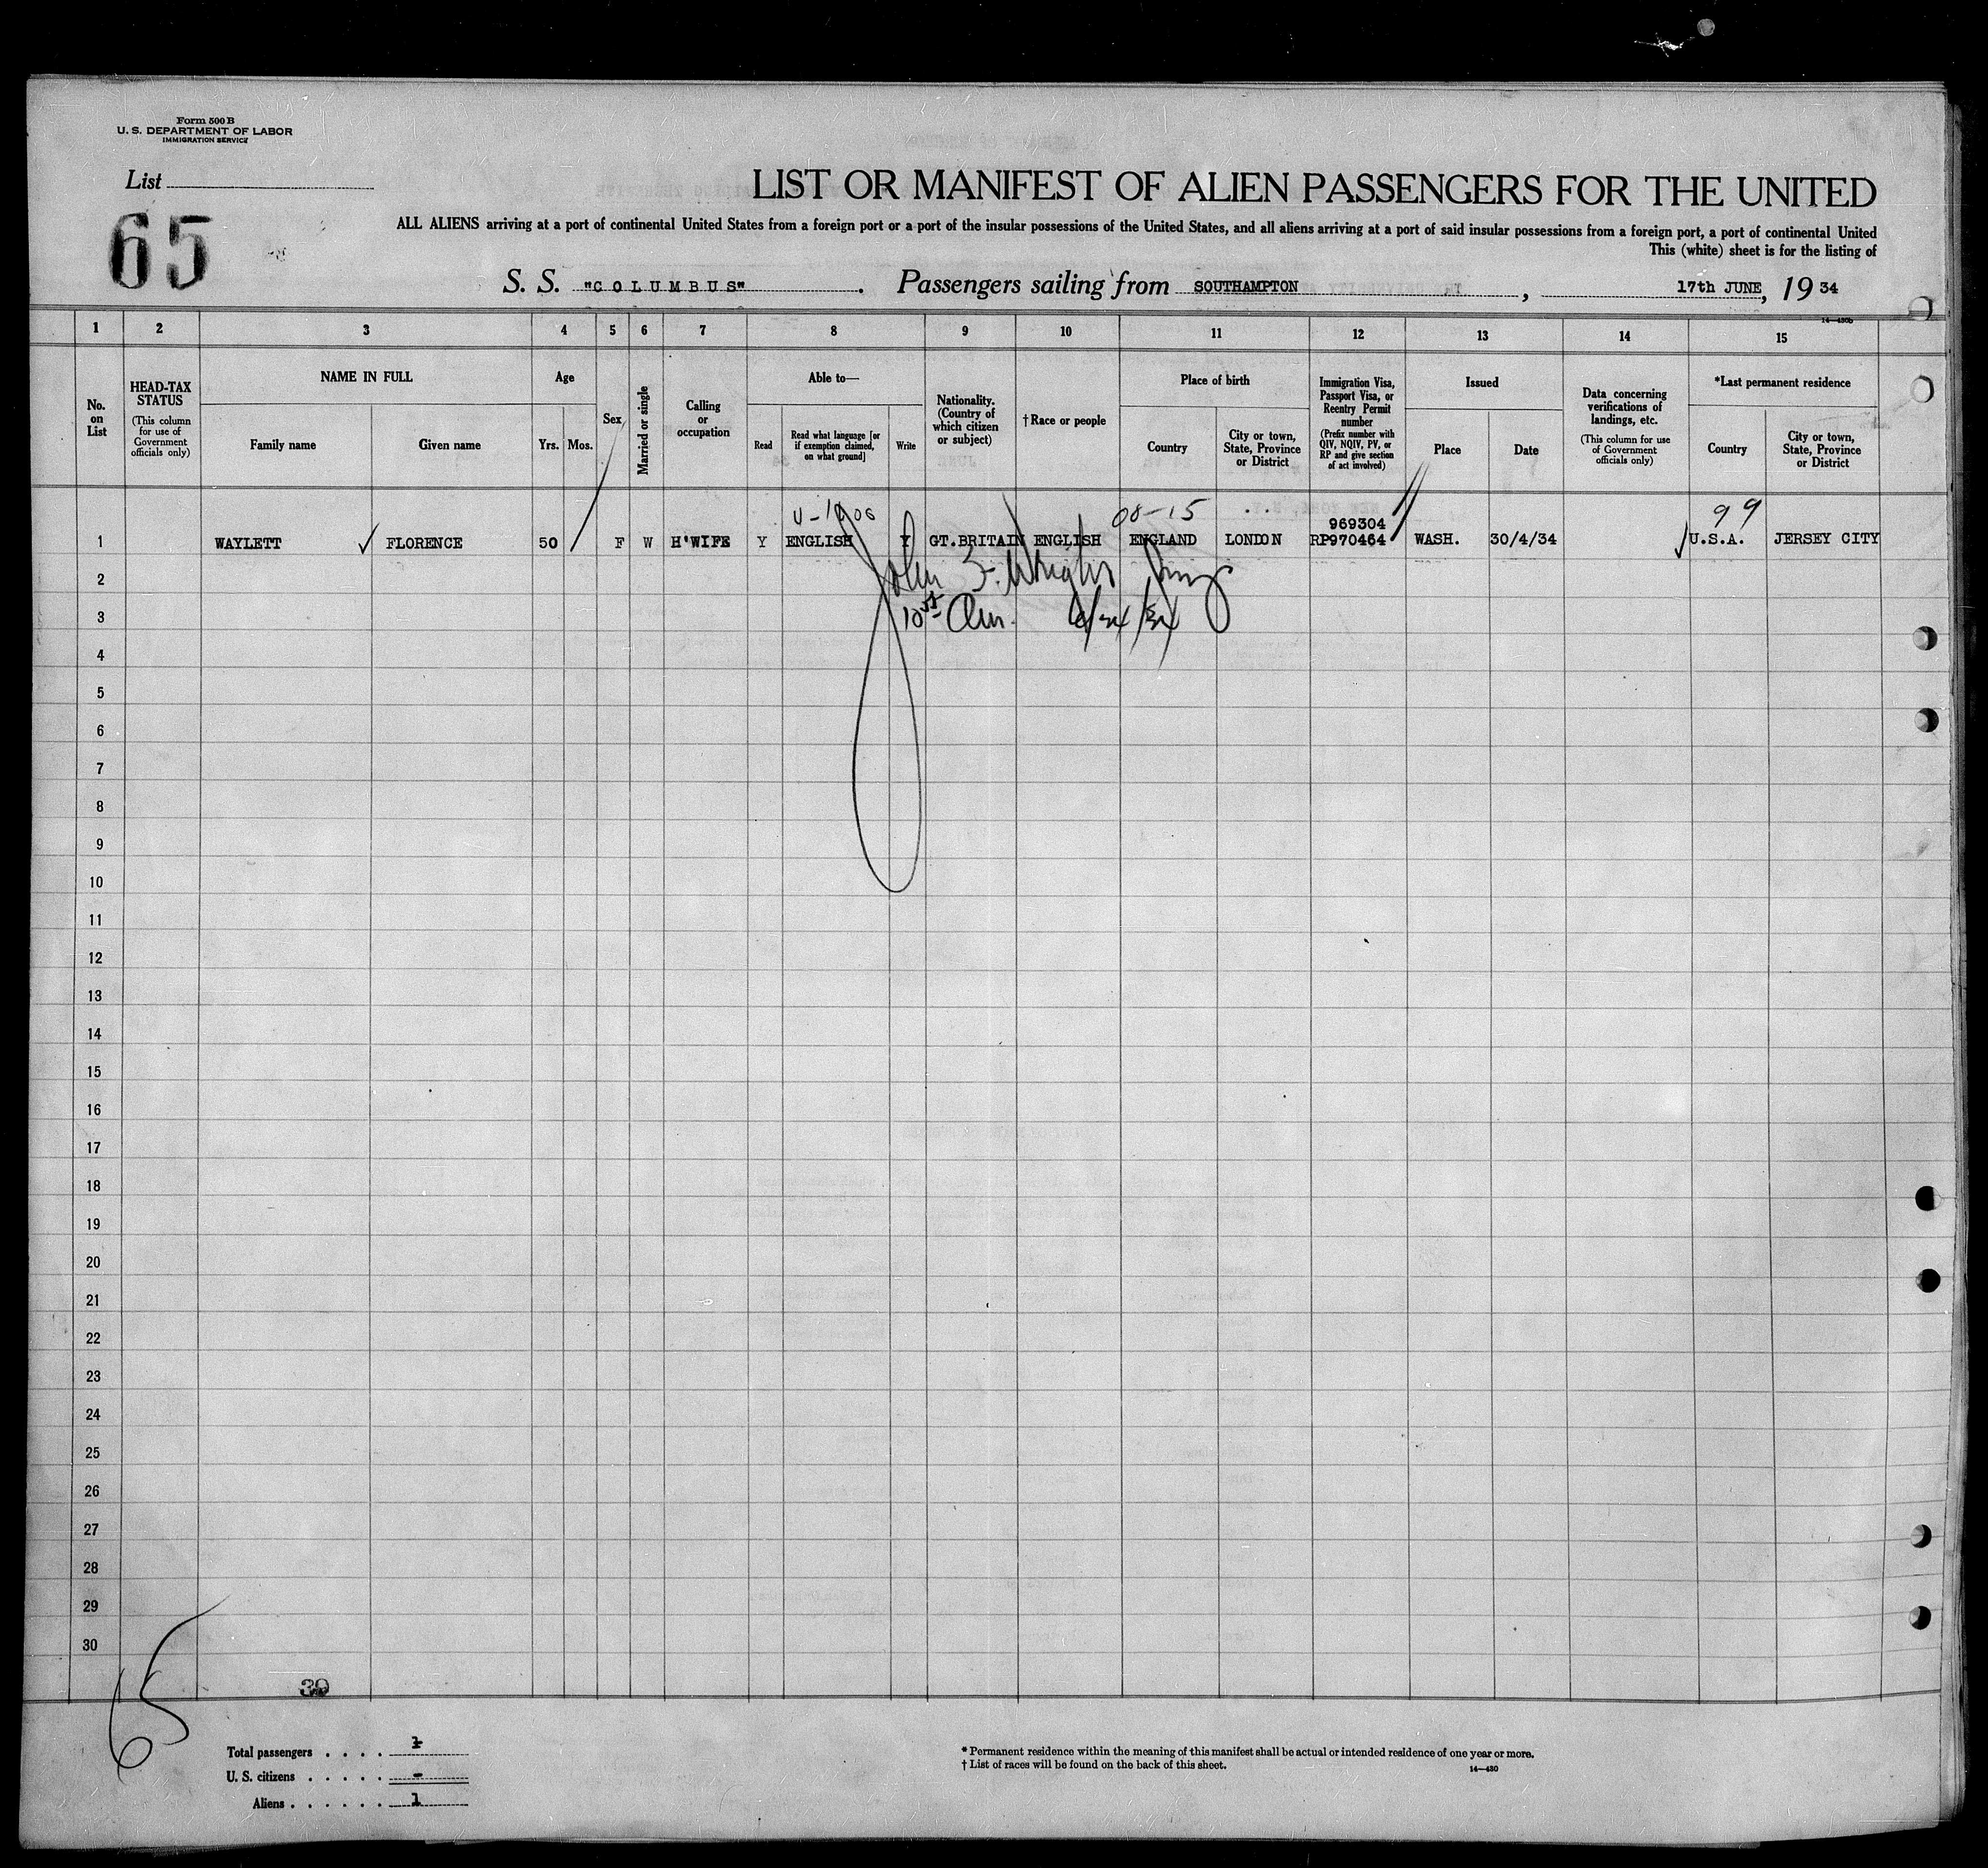 Form 500 B
U. S. DEPARTMENT OF LABOR
IMMIGRATION SERVICE
List
65
LIST OR MANIFEST OF ALIEN PASSENGERS FOR THE UNITED
ALL ALIENS arriving at a port of continental United States from a foreign port or a port of the insular possessions of the United States, and all aliens arriving at a port of said insular possessions from a foreign port, a port of continental United
This (white) sheet is for the listing of
S. S. "COLUMBUS" . Passengers sailing from SOUTHAMPTON , 17th JUNE, 19 34
14—430b
1 2 3 4 5 6 7 8 9 10 11 12 13 14 15
No. on List
HEAD-TAX STATUS
(This column for use of Government officials only)
NAME IN FULL
Family name Given name
Age
Yrs. Mos.
Sex
Married or single
Calling or occupation
Able to—
Read
Read what language [or if exemption claimed, on what ground]
Write
Nationality. (Country of which citizen or subject)
†Race or people
Place of birth
Country
City or town, State, Province or District
Immigration Visa, Passport Visa, or Reentry Permit number
(Prefix number with QIV, NQIV, PV, or RP and give section of act involved)
Issued
Place Date
Data concerning verifications of landings, etc.
(This column for use of Government officials only)
*Last permanent residence
Country
City or town, State, Province or District
08-15 99
969304
1 WAYLETT ✓ FLORENCE 50 F W H'WIFE Y ENGLISH Y GT.BRITAIN ENGLISH ENGLAND LONDON RP970464 WASH. 30/4/34 ✓ U.S.A. JERSEY CITY
2 John
3
4
5
6
7
8
9
10
11
12
13
14
15
16
17
18
19
20
21
22
23
24
25
26
27
28
29
30
39
65
Total passengers . . . . 1
U. S. citizens . . . . . -
Aliens . . . . . . 1
* Permanent residence within the meaning of this manifest shall be actual or intended residence of one year or more.
† List of races will be found on the back of this sheet.
14—430